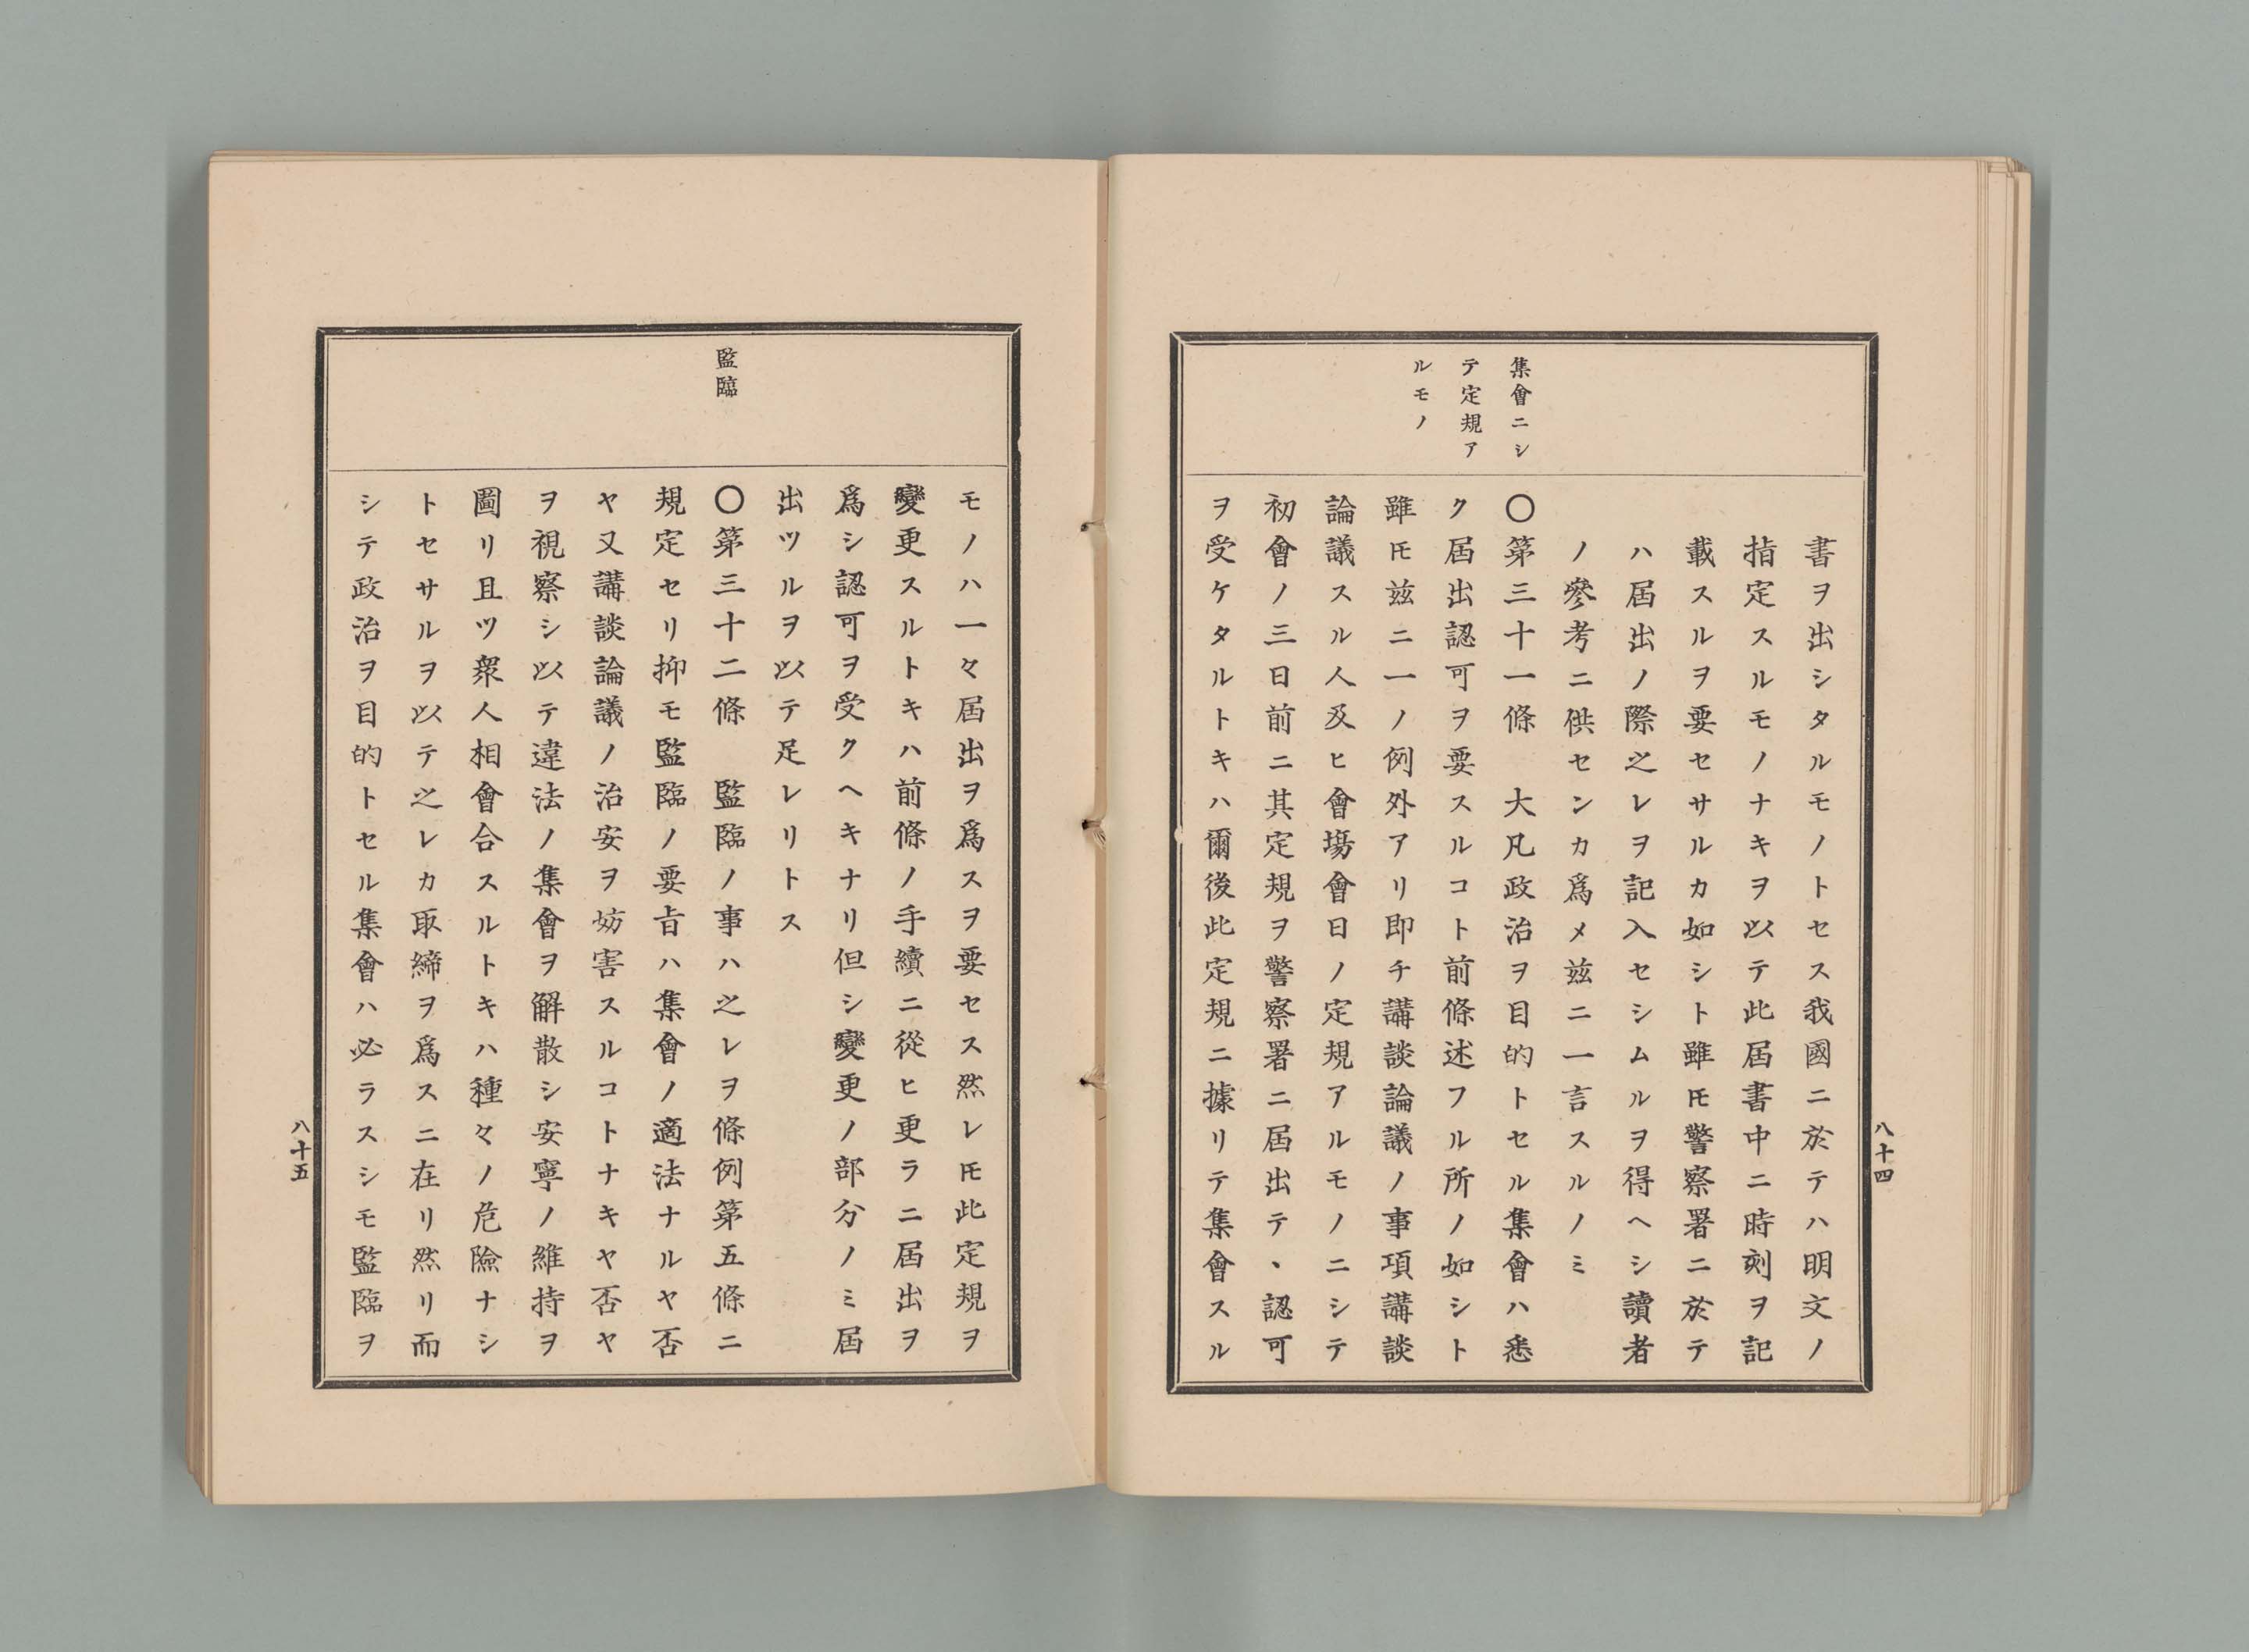 八十四
集會ニシ
テ定規ア
ルモノ
書ヲ出シタルモノトセス我國ニ於テハ明文ノ
指定スルモノナキヲ以テ此屆書中ニ時刻ヲ記
載スルヲ要セサルカ如シト雖𪜈警察署ニ於テ
ハ屆出ノ際之レヲ記入セシムルヲ得ヘシ讀者
ノ參考ニ供センカ爲メ茲ニ一言スルノミ
〇第三十一條　大凡政治ヲ目的トセル集會ハ悉
ク屆出認可ヲ要スルコト前條述フル所ノ如シト
雖𪜈茲ニ一ノ例外アリ即チ講談論議ノ事項講談
論議スル人及ヒ會塲會日ノ定規アルモノニシテ
初會ノ三日前ニ其定規ヲ警察署ニ屆出テ、認可
ヲ受ケタルトキハ爾後此定規ニ據リテ集會スル
監臨
モノハ一々屆出ヲ爲スヲ要セス然レ𪜈此定規ヲ
變更スルトキハ前條ノ手續ニ從ヒ更ラニ屆出ヲ
爲シ認可ヲ受クヘキナリ但シ變更ノ部分ノミ屆
出ツルヲ以テ足レリトス
〇第三十二條　監臨ノ事ハ之レヲ條例第五條ニ
規定セリ抑モ監臨ノ要旨ハ集會ノ適法ナルヤ否
ヤ又講談論議ノ治安ヲ妨害スルコトナキヤ否ヤ
ヲ視察シ以テ違法ノ集會ヲ解散シ安寧ノ維持ヲ
圖リ且ツ衆人相會合スルトキハ種々ノ危險ナシ
トセサルヲ以テ之レカ取締ヲ爲スニ在リ然リ而
シテ政治ヲ目的トセル集會ハ必ラスシモ監臨ヲ
八十五